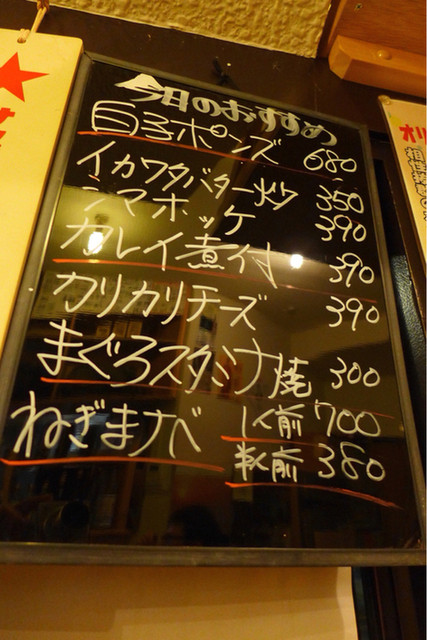 今日のおすすめ
白子ポンズ 680
イカワタバター炒 350
シマホッケ 390
カレイ煮付 390
カリカリチーズ 390
まぐろスタミナ焼 300
ねぎまナベ 1人前 700
半人前 380
オリ